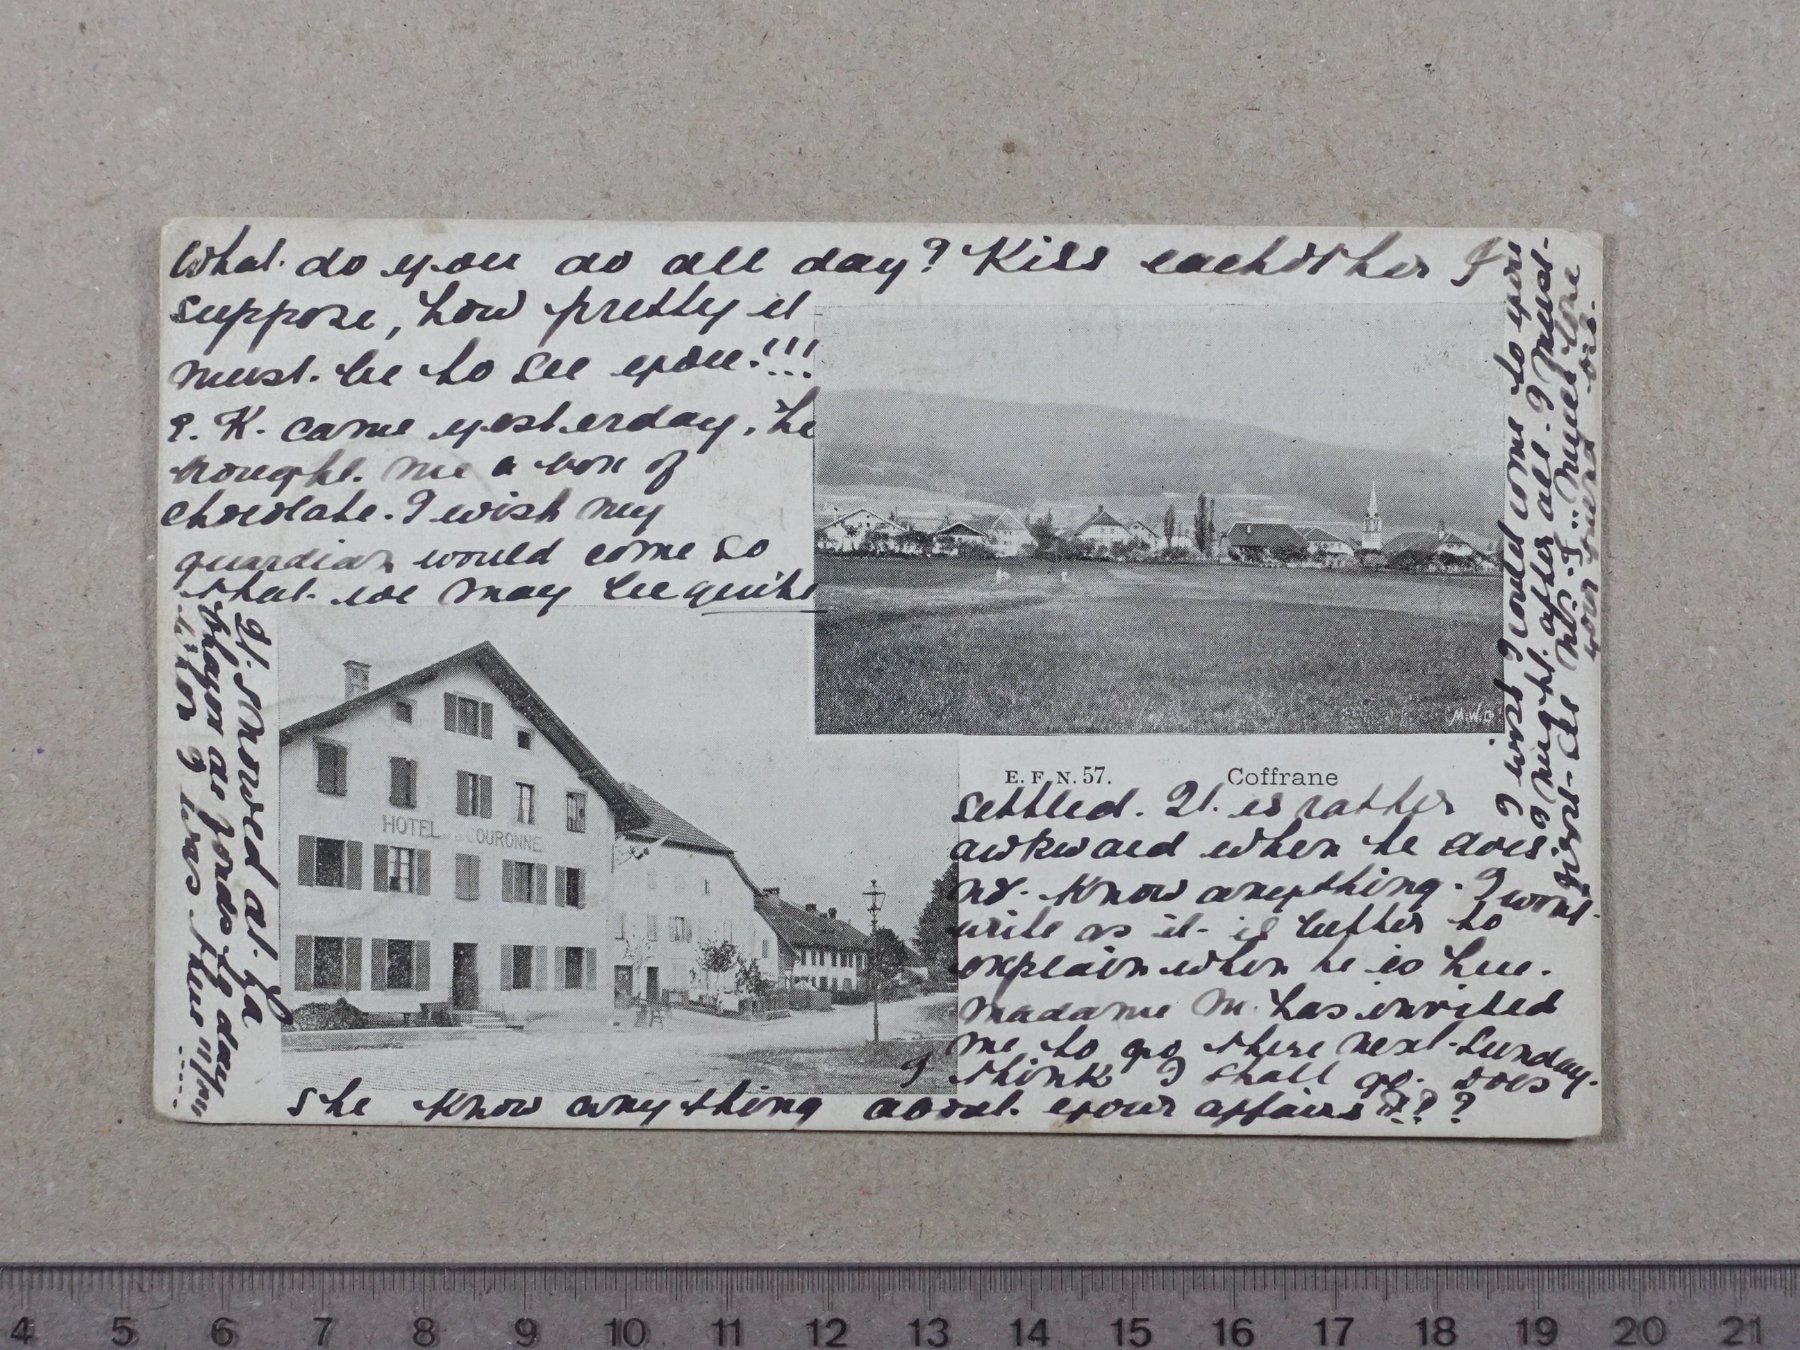 What do you do all day? Kiss eachother I
suppose, how pretty it
must be to see you!!!
P. K. came yesterday, he
brought me a box of
chocolate. I wish my
guardian would come so
that we may be quite
M.W.
E. F. N. 57.
Coffrane
HOTEL COURONNE
settled. It is rather
awkward when he does
not know anything. I wont
write as it is better to
explain when he is here.
Madame M. has invited
me to go there next Sunday.
I think I shall go. Does
she know anything about your affairs???
It snowed at La
the day
when I was there
I wish I could come to you
I might after all. I must
first
your
4 5 6 7 8 9 10 11 12 13 14 15 16 17 18 19 20 21